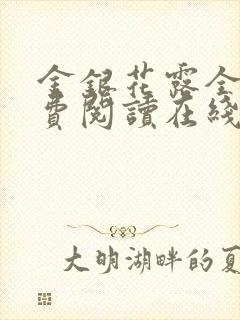 金銀花露全
費閱讀在綫
大明湖畔的夏